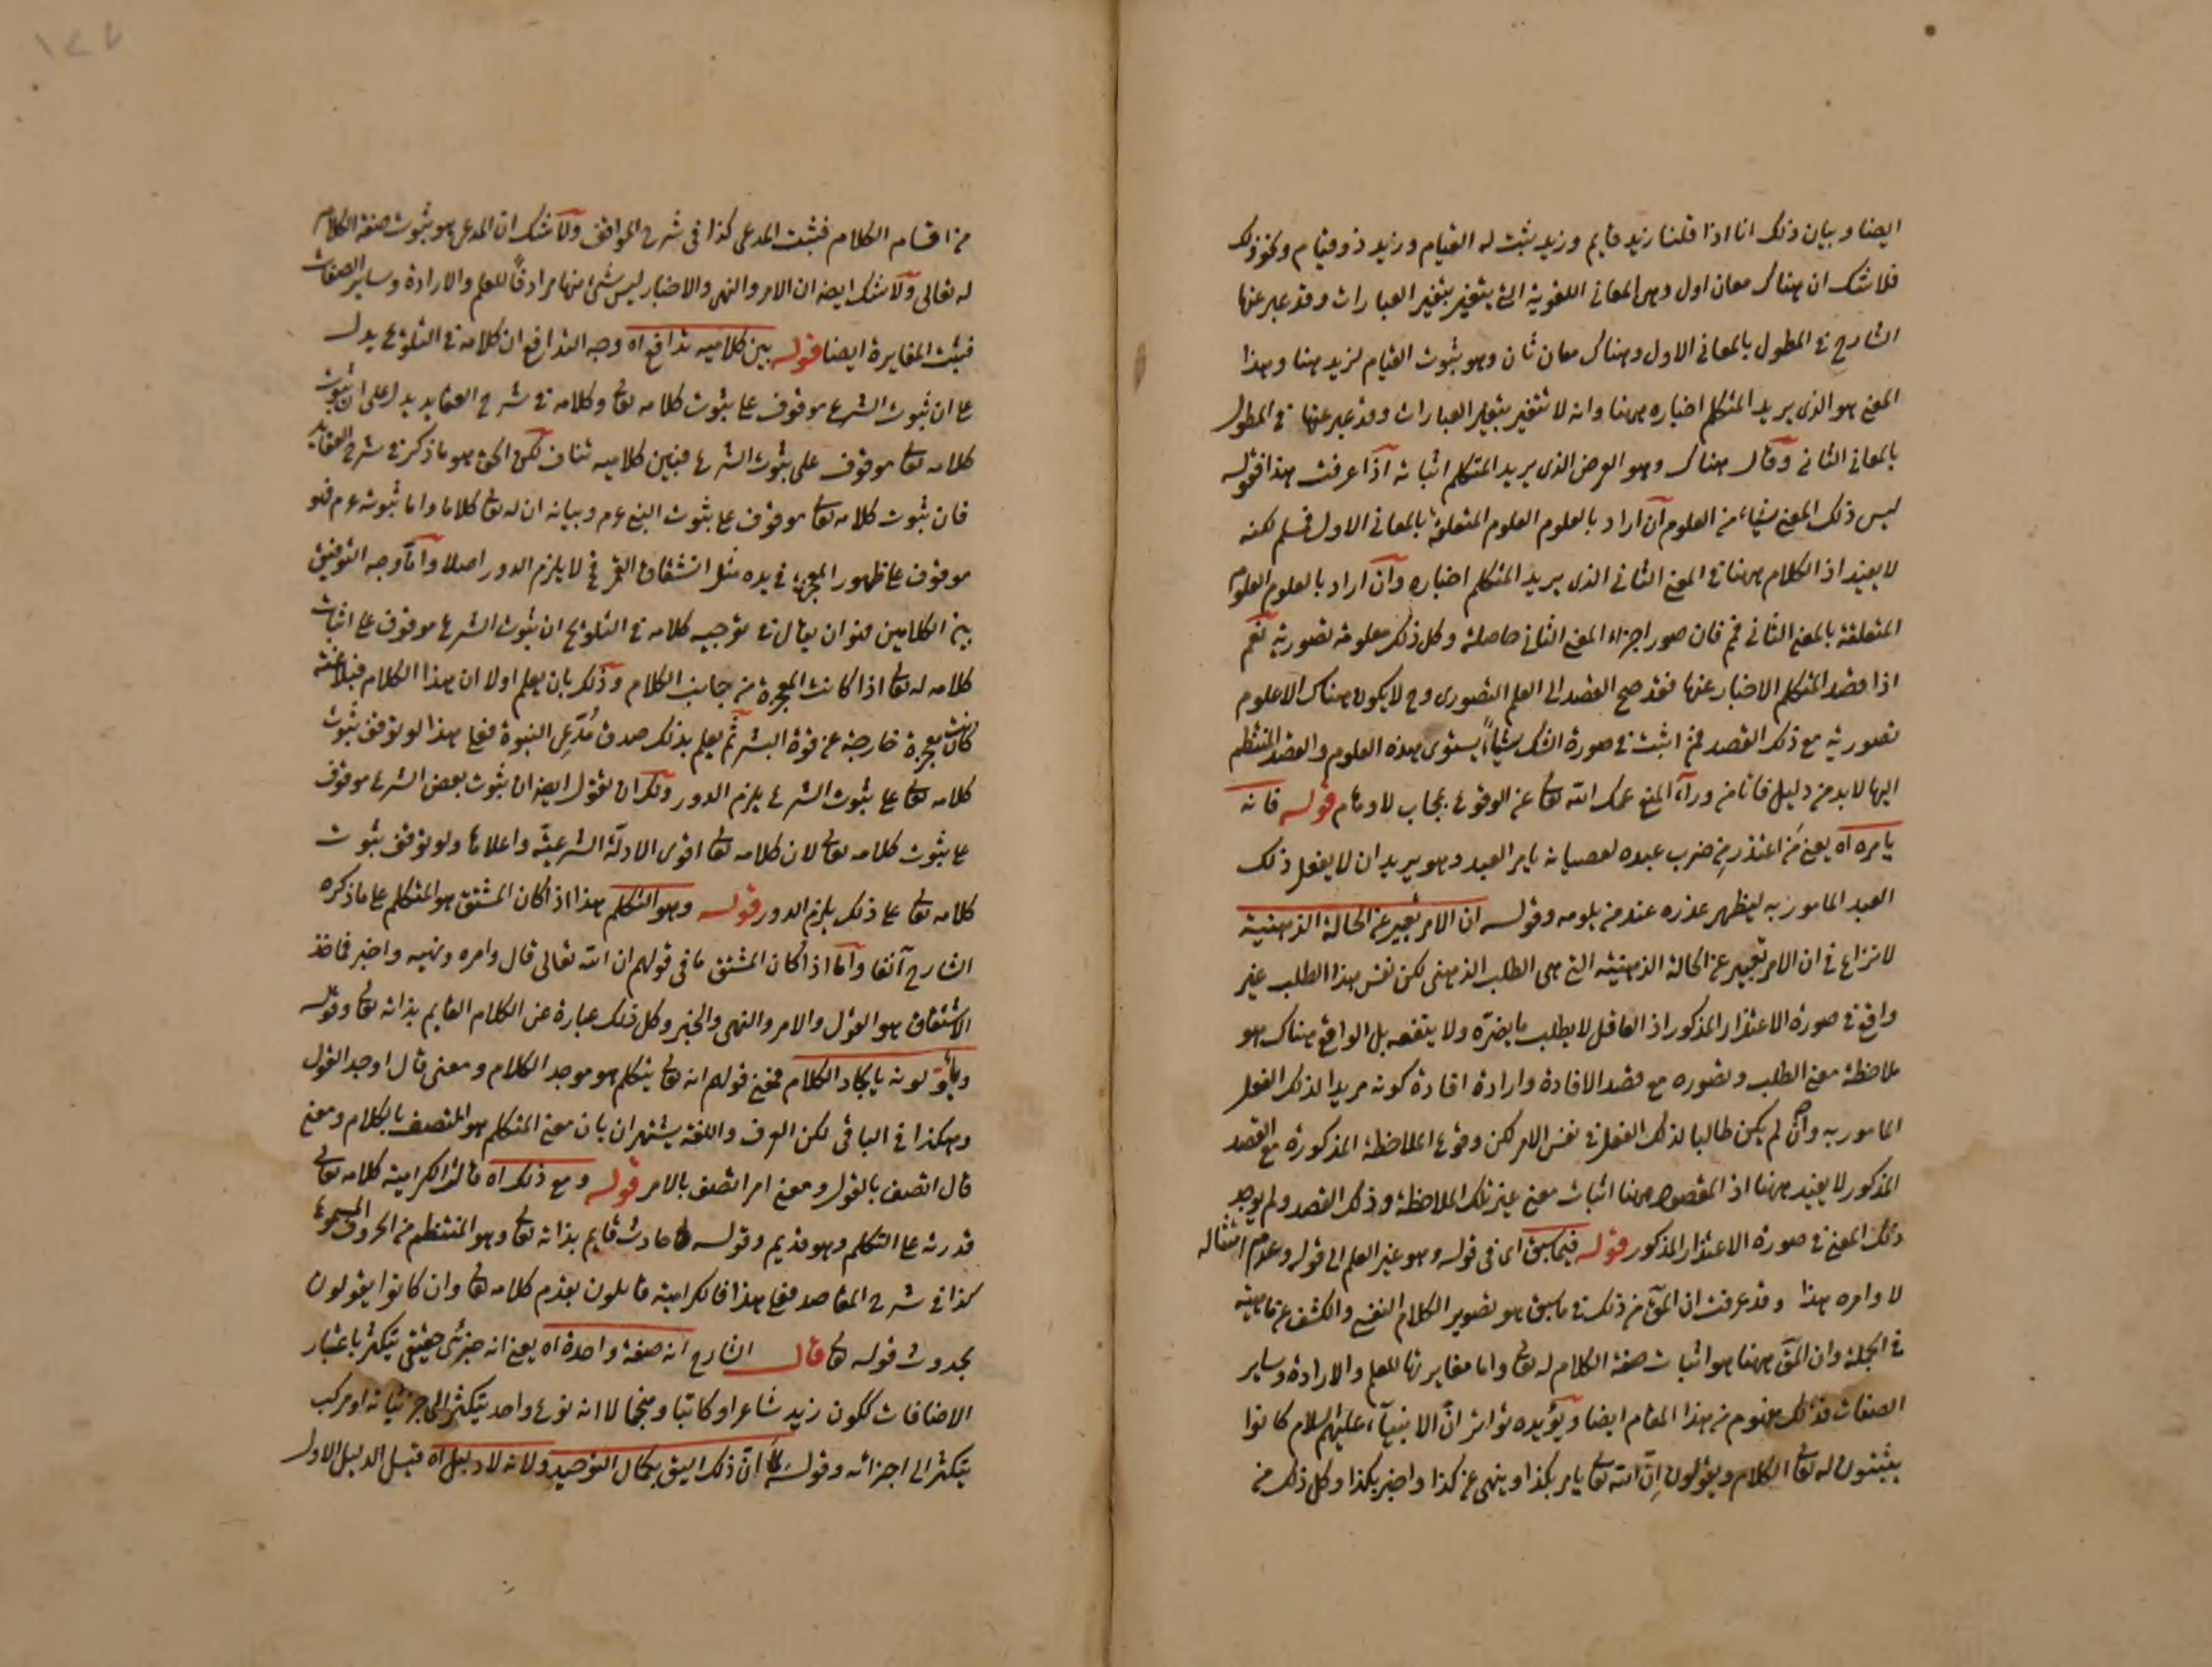 ايضا وبيان ذلك انا اذا قلنا زيد قايم وزيد يثبت له القيام وزيد ذو قيام ونحو ذلك
فلا شك ان هناك معان اول وهى المعانى اللغوية التى يتغير بتغير العبارات وقد عبر عنها
الشارح فى المطول بالمعانى الاول وهناك معان ثان وهو ثبوت القيام لزيد هنا وهذا
المعنى هو الذى يريد المتكلم اخباره ههنا وانه لا تتغير بتغير العبارات وقد عبر عنها فى المطول
بالمعانى الثانى وقال هناك وهو الغرض الذى يريد المتكلم اثباته اذا عرفت هذا فقوله
ليس ذلك المعنى شياء من العلوم ان اراد بالعلوم العلوم المتعلقة بالمعانى الاول فسلم لكنه
لا يفيد اذ الكلام ههنا فى المعنى الثانى الذى يريد المتكلم اخباره وان اراد بالعلوم العلوم
المتعلقة بالمعنى الثانى فمم فان صور اجزاء المعنى الثانى حاصلة وكل ذلك معلومة تصورية نعم
اذا قصد المتكلم الاخبار عنها فقد صح القصد الى العلم التصورى وح لا يكون هناك الا علوم
تصورية مع ذلك القصد فمن اثبت فى صورة الشك شياً يستوى هذه العلوم والقصد المنتظم
اليها لا بد من دليل فانا من وراء المنع عمك الله تعا عن الوقوع بحجاب لاوهام قوله فانه
يامره اه يعنى من اعتذر من ضرب عبده لعصيانه يامر العبد وهو يريد ان لا يفعل ذلك
العبد المامور به ليظهر عذره عند من يلومه وقوله ان الامر تعبير عن الحالة الذهنية
لا نزاع فى ان الامر تعبير عن الحالة الذهنية التى هى الطلب الذهنى لكن نفس هذا الطلب غير
واقع فى صورة الاعتذار المذكور اذ العاقل لا يطلب ما يضره ولا ينفعه بل الواقع هناك هو
ملاحظة معنى الطلب وتصوره مع قصد الافادة وارادة افادة كونه مريدا لذلك الفعل
المامور به وان لم يكن طالبا لذلك الفعل فى نفس الامر لكن وقوع الملاحظة المذكورة مع القصد
المذكور لا يفيد ههنا اذ المقصود ههنا اثبات معنى غير تلك الملاحظة وذلك القصد ولم يوجد
ذلك المعنى فى صورة الاعتذار المذكور قوله فيما سبق اى فى قوله وهو غير العلم الى قوله وعدم امتثاله
لاوامره هذا وقد عرفت ان المق من ذلك فى ما سبق هو تصوير الكلام النفسى والكشف عن ماهيته
فى الجملة وان المق ههنا هو اثبات صفة الكلام له تعا واما مغايرتها للعلم والارادة وساير
الصفات فذلك معلوم من هذا المقام ايضا ويؤيده تواتر ان الانبيآء عليهم السلام كانوا
يثبتون له تعا الكلام ويقولون ان الله تعا يامر بكذا وينهى عن كذا واخبر بكذا وكل ذلك من
من اقسام الكلام فثبت المدعى كذا فى شرح المواقف ولا شك ان المدعى هو ثبوت صفة الكلام
له تعالى ولا شك ايضا ان الامر والنهى والاخبار ليس شئ منها مرادفًا للعلم والارادة وساير الصفات
فثبت المغايرة ايضا قوله بين كلاميه تدافع اه وجه التدافع ان كلامه فى التلويح يدل
على ان ثبوت الشرع موقوف على ثبوت كلامه تعا وكلامه فى شرح العقايد يدل على ان ثبوت
كلامه تعا موقوف على ثبوت الشرع فبين كلاميه تناف لكن الحق هو ما ذكر فى شرح العقايد
فان ثبوت كلامه تعا موقوف على ثبوت النبى عم وبيانه ان له تعا كلاما واما ثبوته عم فهو
موقوف على ظهور المعجزة فى يده مثل انشقاق القمر فح لا يلزم الدور اصلا واما وجه التوفيق
بين الكلامين فهو ان يقال فى توجيه كلامه فى التلويح ان ثبوت الشرع موقوف على اثبات
كلامه له تعا اذا كانت المعجزة من جانب الكلام وذلك بان يعلم اولا ان هذا الكلام فبلاغته
كانت معجزة خارجة عن قوة البشر ثم يعلم بذلك صدق مدعى النبوة فعلى هذا لو توقف ثبوت
كلامه تعا على ثبوت الشرع يلزم الدور ولك ان تقول ايضا ان ثبوت بعض الشرع موقوف
على ثبوت كلامه تعا لان كلامه تعا اقوى الادلة الشرعية واعلاها ولو توقف ثبوت
كلامه تعا على ذلك يلزم الدور قوله وهو المتكلم هذا اذا كان المشتق هو المتكلم على ما ذكره
الشارح آنفا واما اذا كان المشتق ما فى قولهم ان الله تعالى قال وامره ونهيه واخبر فماخذ
الاشتقاق هو القول والامر والنهى والخبر وكل ذلك عبارة عن الكلام القايم بذاته تعا وقوله
ويأولونه بايجاد الكلام فمعنى قولهم انه تعا يتكلم هو موجد الكلام ومعنى قال اوجد القول
وهكذا فى الباقى لكن العرف واللغة يشهدان بان معنى المتكلم هو المتصف بالكلام ومعنى
قال اتصف بالقول ومعنى امر اتصف بالامر قوله ومع ذلك اه قالت الكرامية كلامه تعا
قدرته على التكلم وهو قديم وقوله حادث قايم بذاته تعا وهو المنتظم من الحروف المسموعة
كذا فى شرح المقاصد فعلى هذا فالكرامية قايلون بقدم كلامه تعا وان كانوا يقولون
بحدوث قوله تعا قال الشارح انه صفة واحدة اه يعنى انه جزئى حقيقى يتكثر باعتبار
الاضافات ككون زيد شاعرا وكاتبا ومنجما لا انه نوع واحد يتكثر الى جزئياته او مركب
يتكثر الى اجزائه وقوله ان ذلك اليق بكمال التوحيد ولانه لا دليل اه قيل الدليل الاول